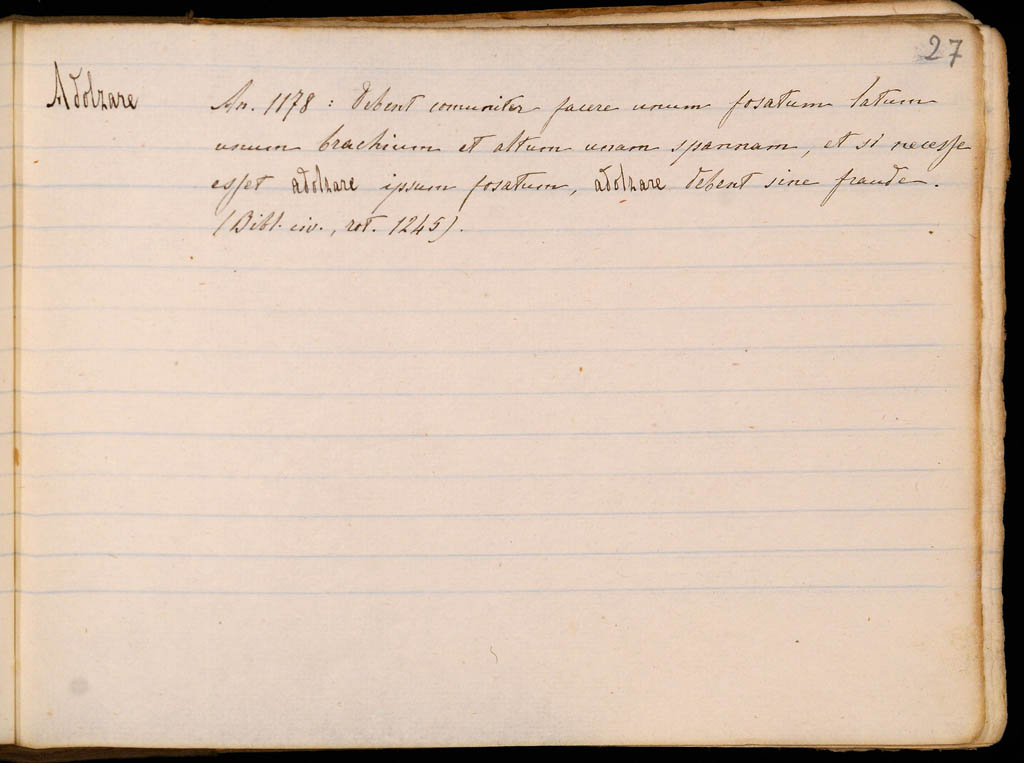 27
Adolzare An. 1178 : debent comuniter facere unum fosatum latum
unum brachium et altum unam spannam, et si necesse
esset adolzare ipsum fosatum, adolzare debent sine fraude.
(Bibl. civ., rot. 1245).